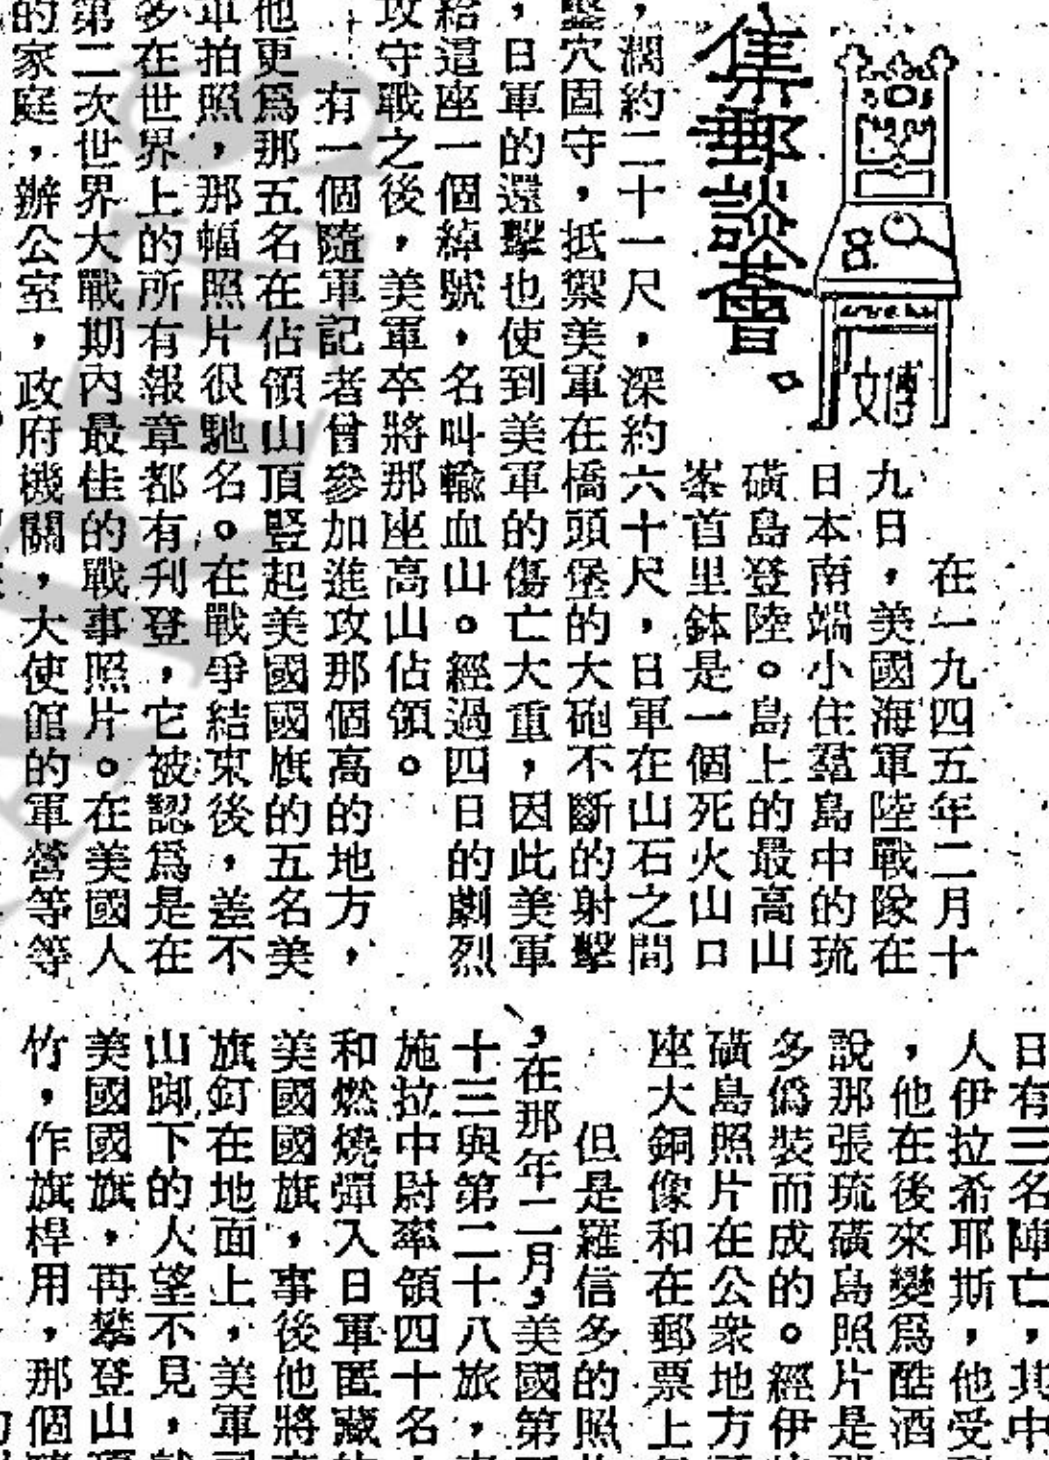 集郵談薈
在一九四五年二月十
九日，美國海軍陸戰隊在
日本南端小住羣島中的琉
磺島登陸。島上的最高山
峯首里鉢是一個死火山口
，濶約二十一尺，深約六十尺，日軍在山石之間
鑿穴固守，抵禦美軍在橋頭堡的大砲不斷的射擊
，日軍的還擊也使到美軍的傷亡大重，因此美軍
給這座一個綽號，名叫輸血山。經過四日的劇烈
攻守戰之後，美軍卒將那座高山佔領。
有一個隨軍記者曾參加進攻那個高的地方，
他更爲那五名在佔領山頂豎起美國國旗的五名美
軍拍照，那幅照片很馳名。在戰爭結束後，差不
多在世界上的所有報章都有刋登，它被認爲是在
第二次世界大戰期內最佳的戰事照片。在美國人
的家庭，辦公室，政府機關，大使館的軍營等等
日有三名陣亡，其中
人伊拉希耶斯，他受
，他在後來變爲酷酒
說那張琉磺島照片是
多僞裝而成的。經伊
磺島照片在公衆地方
座大銅像和在郵票上
但是羅信多的照
，在那年二月，美國第
十三與第二十八旅，
施拉中尉率領四十名
和燃燒彈入日軍匿藏
美國國旗，事後他將
旗釘在地面上，美軍
山脚下的人望不見，
美國國旗，再攀登山
竹，作旗桿用，那個